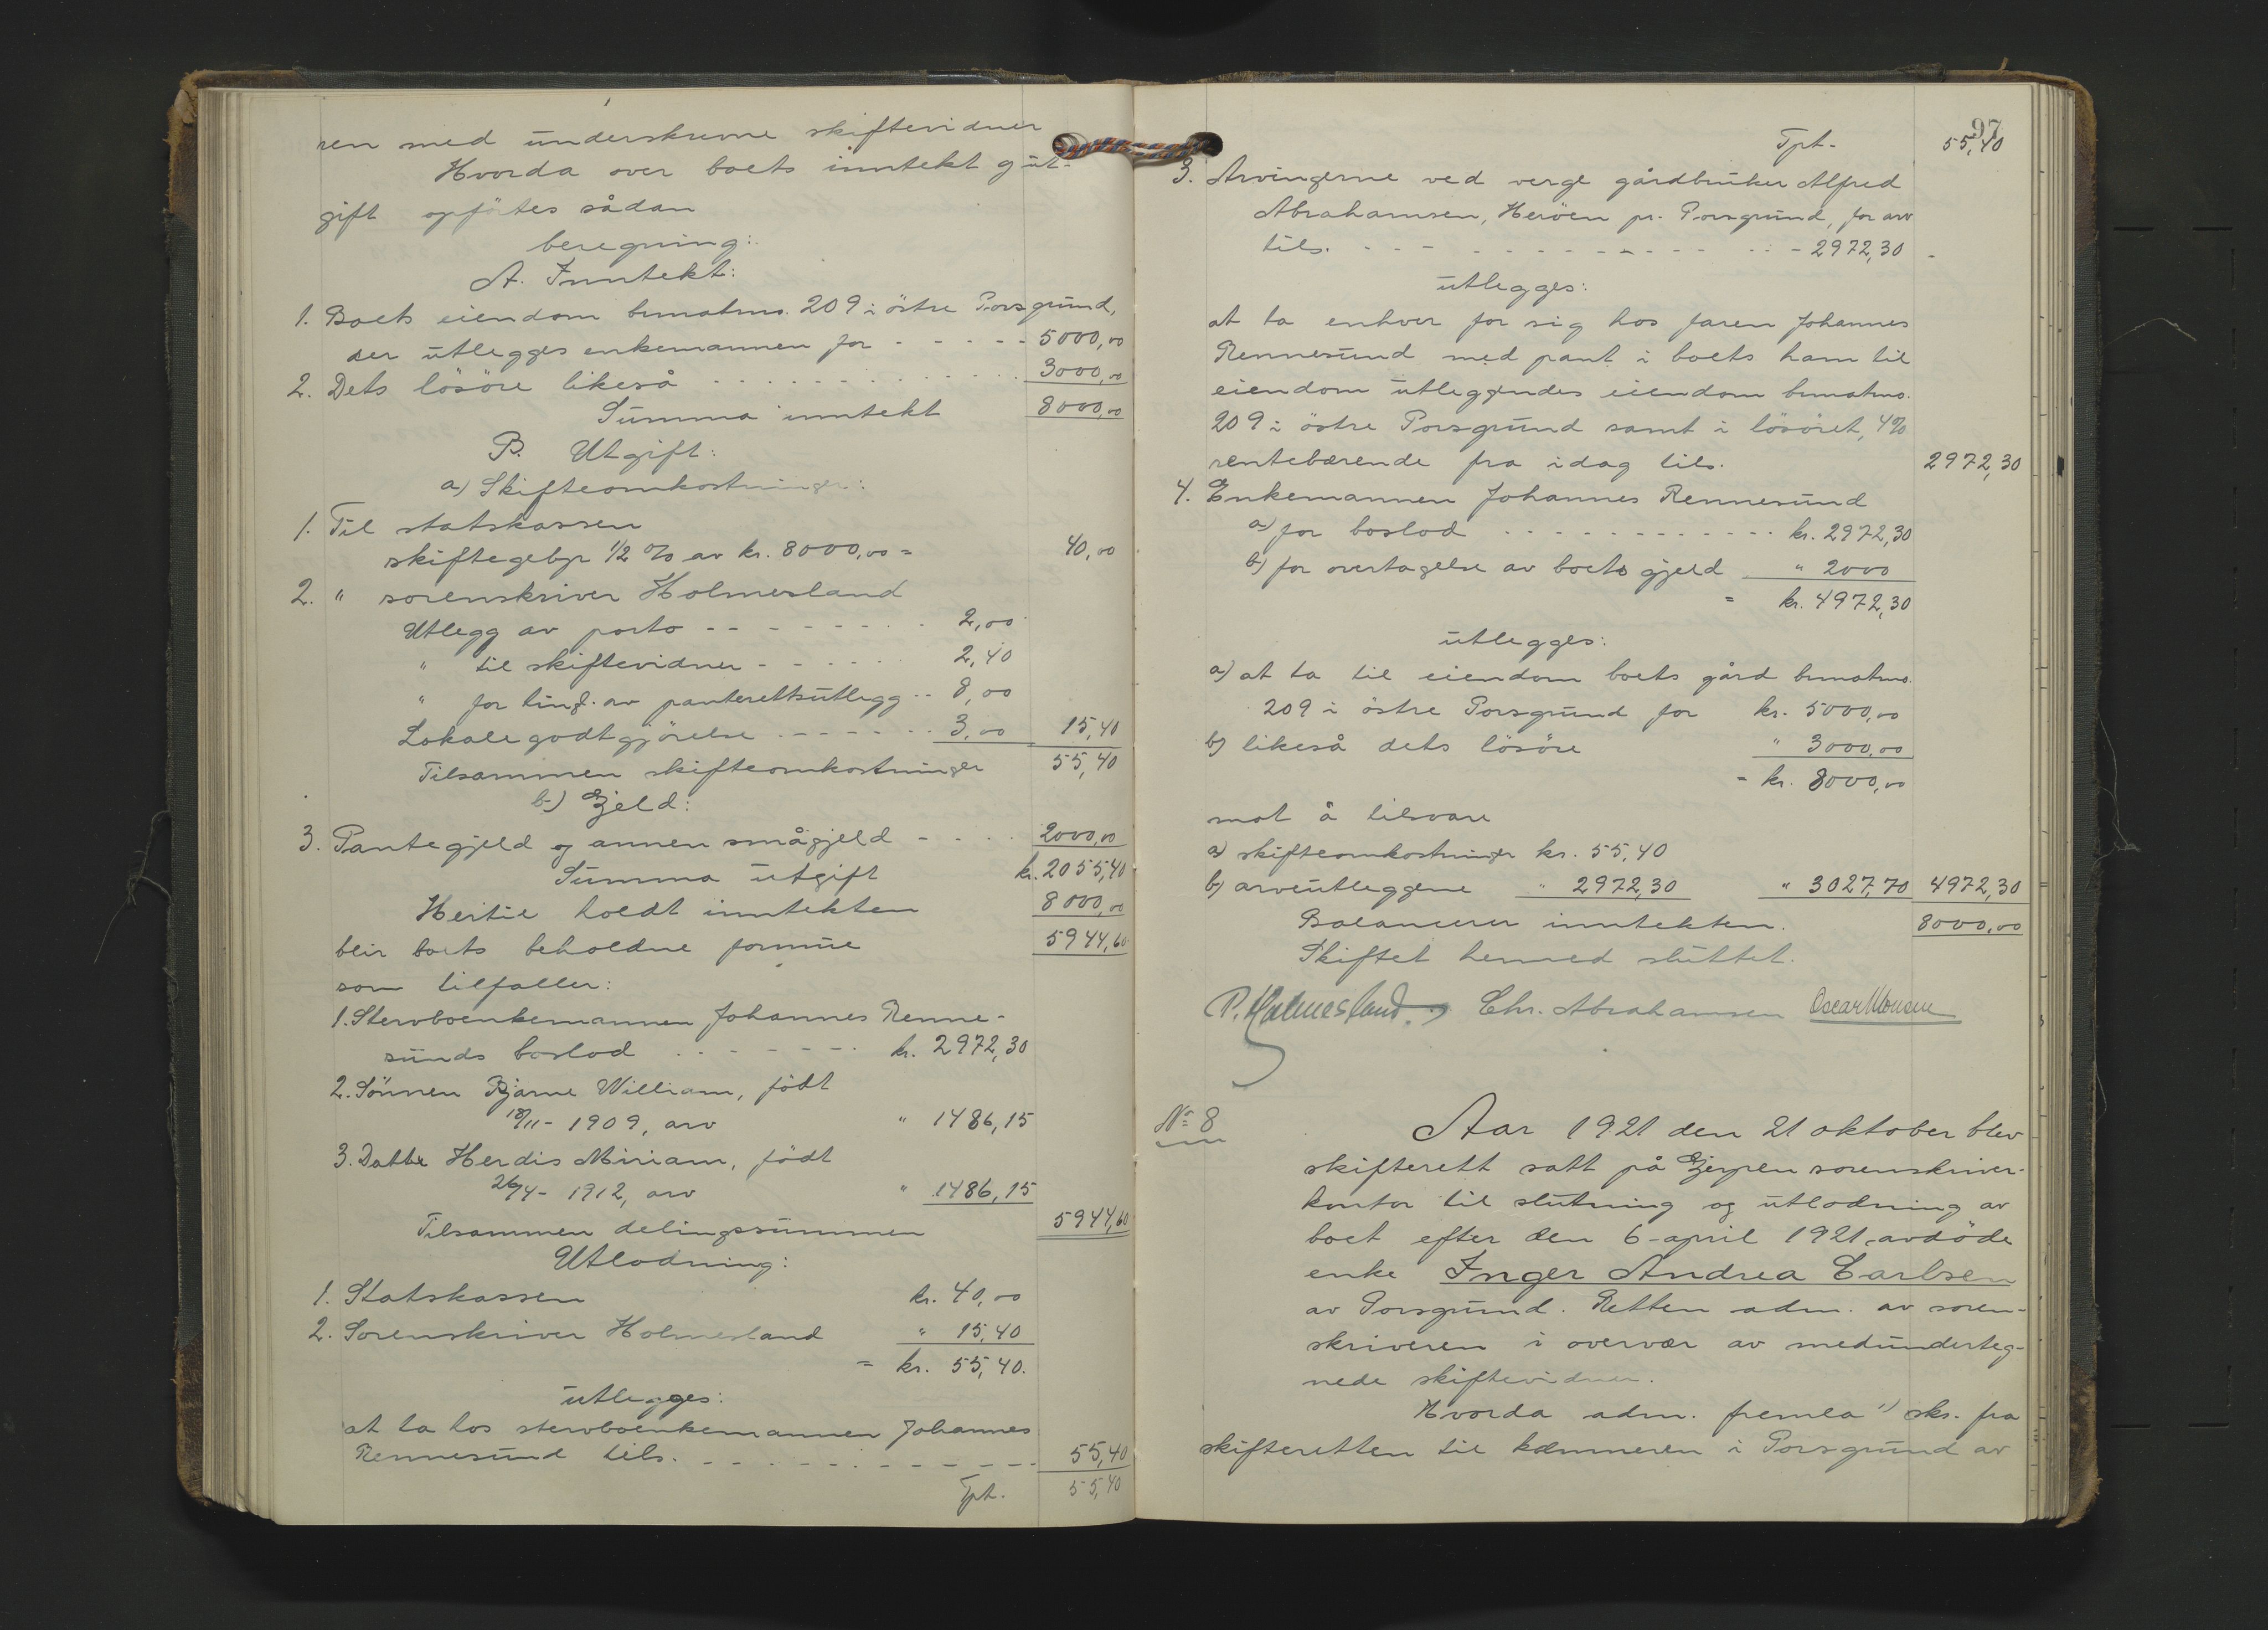 ren med underskrevne skiftevidner
Hvorda over boets inntekt og ut-
gift opførtes sådan
beregning:
A. Inntekt:
1. Boets eiendom bumatrno. 209 i östre Porsgrund,
der utlegges enkemannen for - - - - - 5000,00
2. Dets lösöre likeså - - - - - 3000,00
Summa inntekt 8000,00
B. Utgift:
a) Skifteomkostninger:
1. Til statskassen
skiftegebyr 1/2 % av kr. 8000,00 = 40,00
2. " sorenskriver Holmesland
Utlegg av porto - - - - - 2,00
" til skiftevidner - - - - - 2,40
" for tingl. av panterettsutlegg - - 8,00
Lokalegodtgjörelse - - - - - 3,00 15,40
Tilsammen skifteomkostninger 55,40
b) Gjeld:
3. Pantegjeld og annen smågjeld - - - - 2000,00
Summa utgift kr. 2055,40
Hertil holdt inntekten 8000,00
blir boets beholdne formue 5944,60
som tilfaller:
1. Stervboenkemannen Johannes Renne-
sunds boslod - - - - - kr. 2972,30
2. Sönnen Bjarne William, födt
18/11 - 1909, arv " 1486,15
3. Datter Herdis Miriam, födt
26/4 - 1912, arv " 1486,15
Tilsammen delingssummen 5944,60
Utlodning:
1. Statskassen kr. 40,00
2. Sorenskriver Holmesland " 15,40
= kr. 55,40.
utlegges:
at ta hos stervboenkemannen Johannes
Rennesund tils. - - - - - 55,40
Tpt. 55,40
97
Tpt. 55,40
3. Arvingerne ved verge gårdbruker Alfred
Abrahamsen, Heröen pr. Porsgrund, for arv
tils. - - - - - 2972,30
utlegges:
at ta enhver for sig hos faren Johannes
Rennesund med pant i boets ham til
eiendom utleggendes eiendom bumatrno.
209 i östre Porsgrund samt i lösöret, 4%
rentebærende fra idag tils. 2972,30
4. Enkemannen Johannes Rennesund
a) for boslod - - - - - kr. 2972,30
b) for overtagelse av boets gjeld " 2000
= kr. 4972,30
utlegges:
a) at ta til eiendom boets gård bumatrno.
209 i östre Porsgrund for kr. 5000,00
b) likeså dets lösöre " 3000,00
= kr. 8000,00
mot å tilsvare
a) skifteomkostninger kr. 55,40
b) arveutleggene " 2972,30 " 3027,70 4972,30
Balancerer inntekten. 8000,00
Skiftet hermed sluttet.
P. Holmesland. Chr. Abrahamsen Oscar Monsen
No 8
Aar 1921 den 21 oktober blev
skifterett satt på Gjerpen sorenskriver-
kontor til slutning og utlodning av
boet efter den 6-april 1921 avdöde
enke Inger Andrea Carlsen
av Porsgrund. Retten adm. av soren-
skriveren i overvær av medunderteg-
nede skiftevidner.
Hvorda adm. fremla 1) sks. fra
skifteretten til kæmneren i Porsgrund av